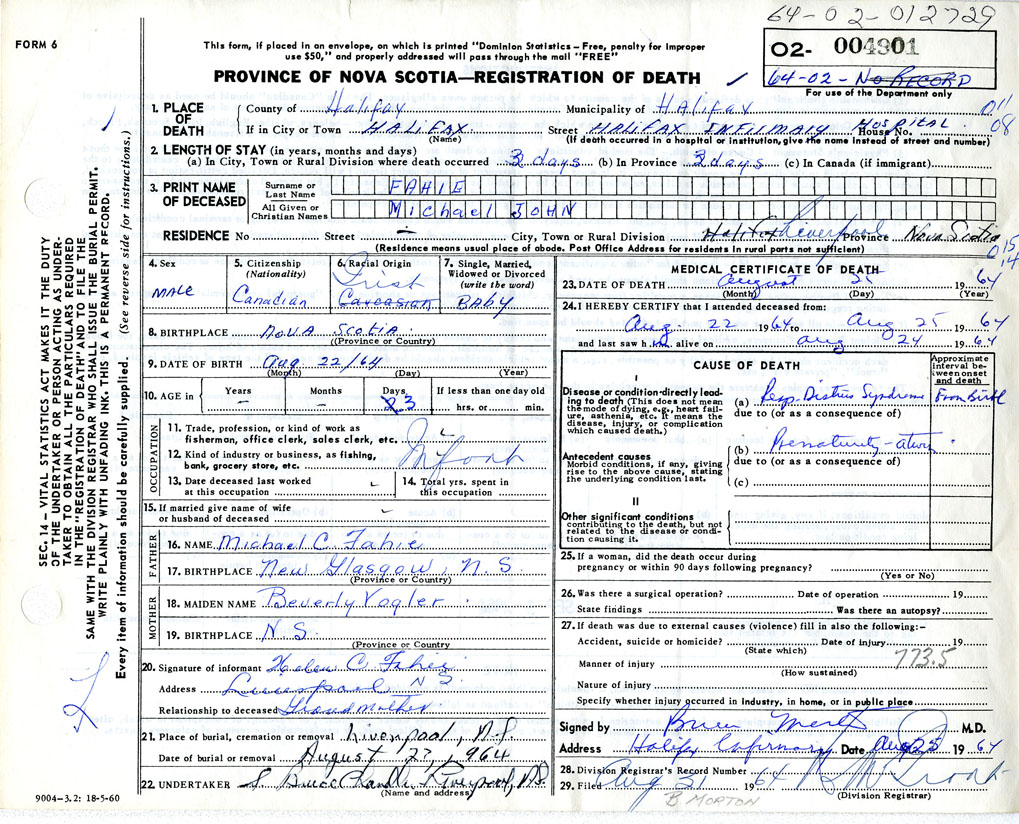 64-02-012729
FORM 6
This form, if placed in an envelope, on which is printed "Dominion Statistics – Free, penalty for improper
use $50," and properly addressed will pass through the mail "FREE"
O2- 004901
64-02-No RECORD
For use of the Department only
PROVINCE OF NOVA SCOTIA—REGISTRATION OF DEATH
1. PLACE OF DEATH
County of Halifax Municipality of HAlifax 011
If in City or Town HALIFAX Street HALIFAX INFIRMARY HOSPITAL House No. 08
(Name) (If death occurred in a hospital or institution, give the name instead of street and number)
2. LENGTH OF STAY (in years, months and days)
(a) In City, Town or Rural Division where death occurred 3 days (b) In Province 3 days (c) In Canada (if immigrant)
3. PRINT NAME OF DECEASED
Surname or Last Name FAHIE
All Given or Christian Names Michael JOHN
RESIDENCE No Street — City, Town or Rural Division Halifax Liverpool Province Nova Scotia
(Residence means usual place of abode. Post Office Address for residents in rural parts not sufficient)
015
14
4. Sex
MALE
5. Citizenship
(Nationality)
Canadian
6. Racial Origin
Irish
Caucasian
7. Single, Married, Widowed or Divorced
(write the word)
BABY
8. BIRTHPLACE NOVA SCOTIA
(Province or Country)
9. DATE OF BIRTH Aug 22/64
(Month) (Day) (Year)
10. AGE in Years – Months – Days 3 If less than one day old hrs. or min.
OCCUPATION
11. Trade, profession, or kind of work as
fisherman, office clerk, sales clerk, etc.
12. Kind of industry or business, as fishing,
bank, grocery store, etc.
13. Date deceased last worked
at this occupation
14. Total yrs. spent in
this occupation
15. If married give name of wife
or husband of deceased
FATHER
16. NAME Michael C. Fahie
17. BIRTHPLACE New Glasgow, N.S.
(Province or Country)
MOTHER
18. MAIDEN NAME Beverly Vogler
19. BIRTHPLACE N.S.
(Province or Country)
20. Signature of informant Helen C. Fahie
Address Liverpool N S
Relationship to deceased Grandmother
21. Place of burial, cremation or removal Liverpool, N.S
Date of burial or removal August 27, 964
22. UNDERTAKER Liverpool, N.S.
(Name and address)
9004—3.2: 18-5-60
MEDICAL CERTIFICATE OF DEATH
23. DATE OF DEATH August 25 19 64
(Month) (Day) (Year)
24. I HEREBY CERTIFY that I attended deceased from:
Aug. 22 1964 to Aug 25 19 64
and last saw h im alive on Aug 24 19 64
CAUSE OF DEATH
Approximate interval between onset and death
I
Disease or condition directly leading to death (This does not mean the mode of dying, e.g., heart failure, asthenia, etc. It means the disease, injury, or complication which caused death.)
(a) Resp. Distress Syndrome From Birth
due to (or as a consequence of)
Antecedent causes
Morbid conditions, if any, giving rise to the above cause, stating the underlying condition last.
(b) Prematurity
due to (or as a consequence of)
(c)
II
Other significant conditions
contributing to the death, but not related to the disease or condition causing it.
25. If a woman, did the death occur during
pregnancy or within 90 days following pregnancy?
(Yes or No)
26. Was there a surgical operation? Date of operation 19
State findings Was there an autopsy?
27. If death was due to external causes (violence) fill in also the following:–
Accident, suicide or homicide? Date of injury 19
(State which)
773.5
Manner of injury
(How sustained)
Nature of injury
Specify whether injury occurred in industry, in home, or in public place
Signed by M.D.
Address Halifax Infirmary Date Aug 25 19 64
28. Division Registrar's Record Number
29. Filed Aug 31 1964
(Division Registrar)
B MORTON
SEC. 14 – VITAL STATISTICS ACT MAKES IT THE DUTY
OF THE UNDERTAKER OR PERSON ACTING AS UNDERTAKER
TO OBTAIN ALL THE PARTICULARS REQUIRED
IN THE "REGISTRATION OF DEATH" AND TO FILE THE
SAME WITH THE DIVISION REGISTRAR WHO SHALL ISSUE THE BURIAL PERMIT.
WRITE PLAINLY WITH UNFADING INK. THIS IS A PERMANENT RECORD.
Every item of information should be carefully supplied. (See reverse side for instructions.)